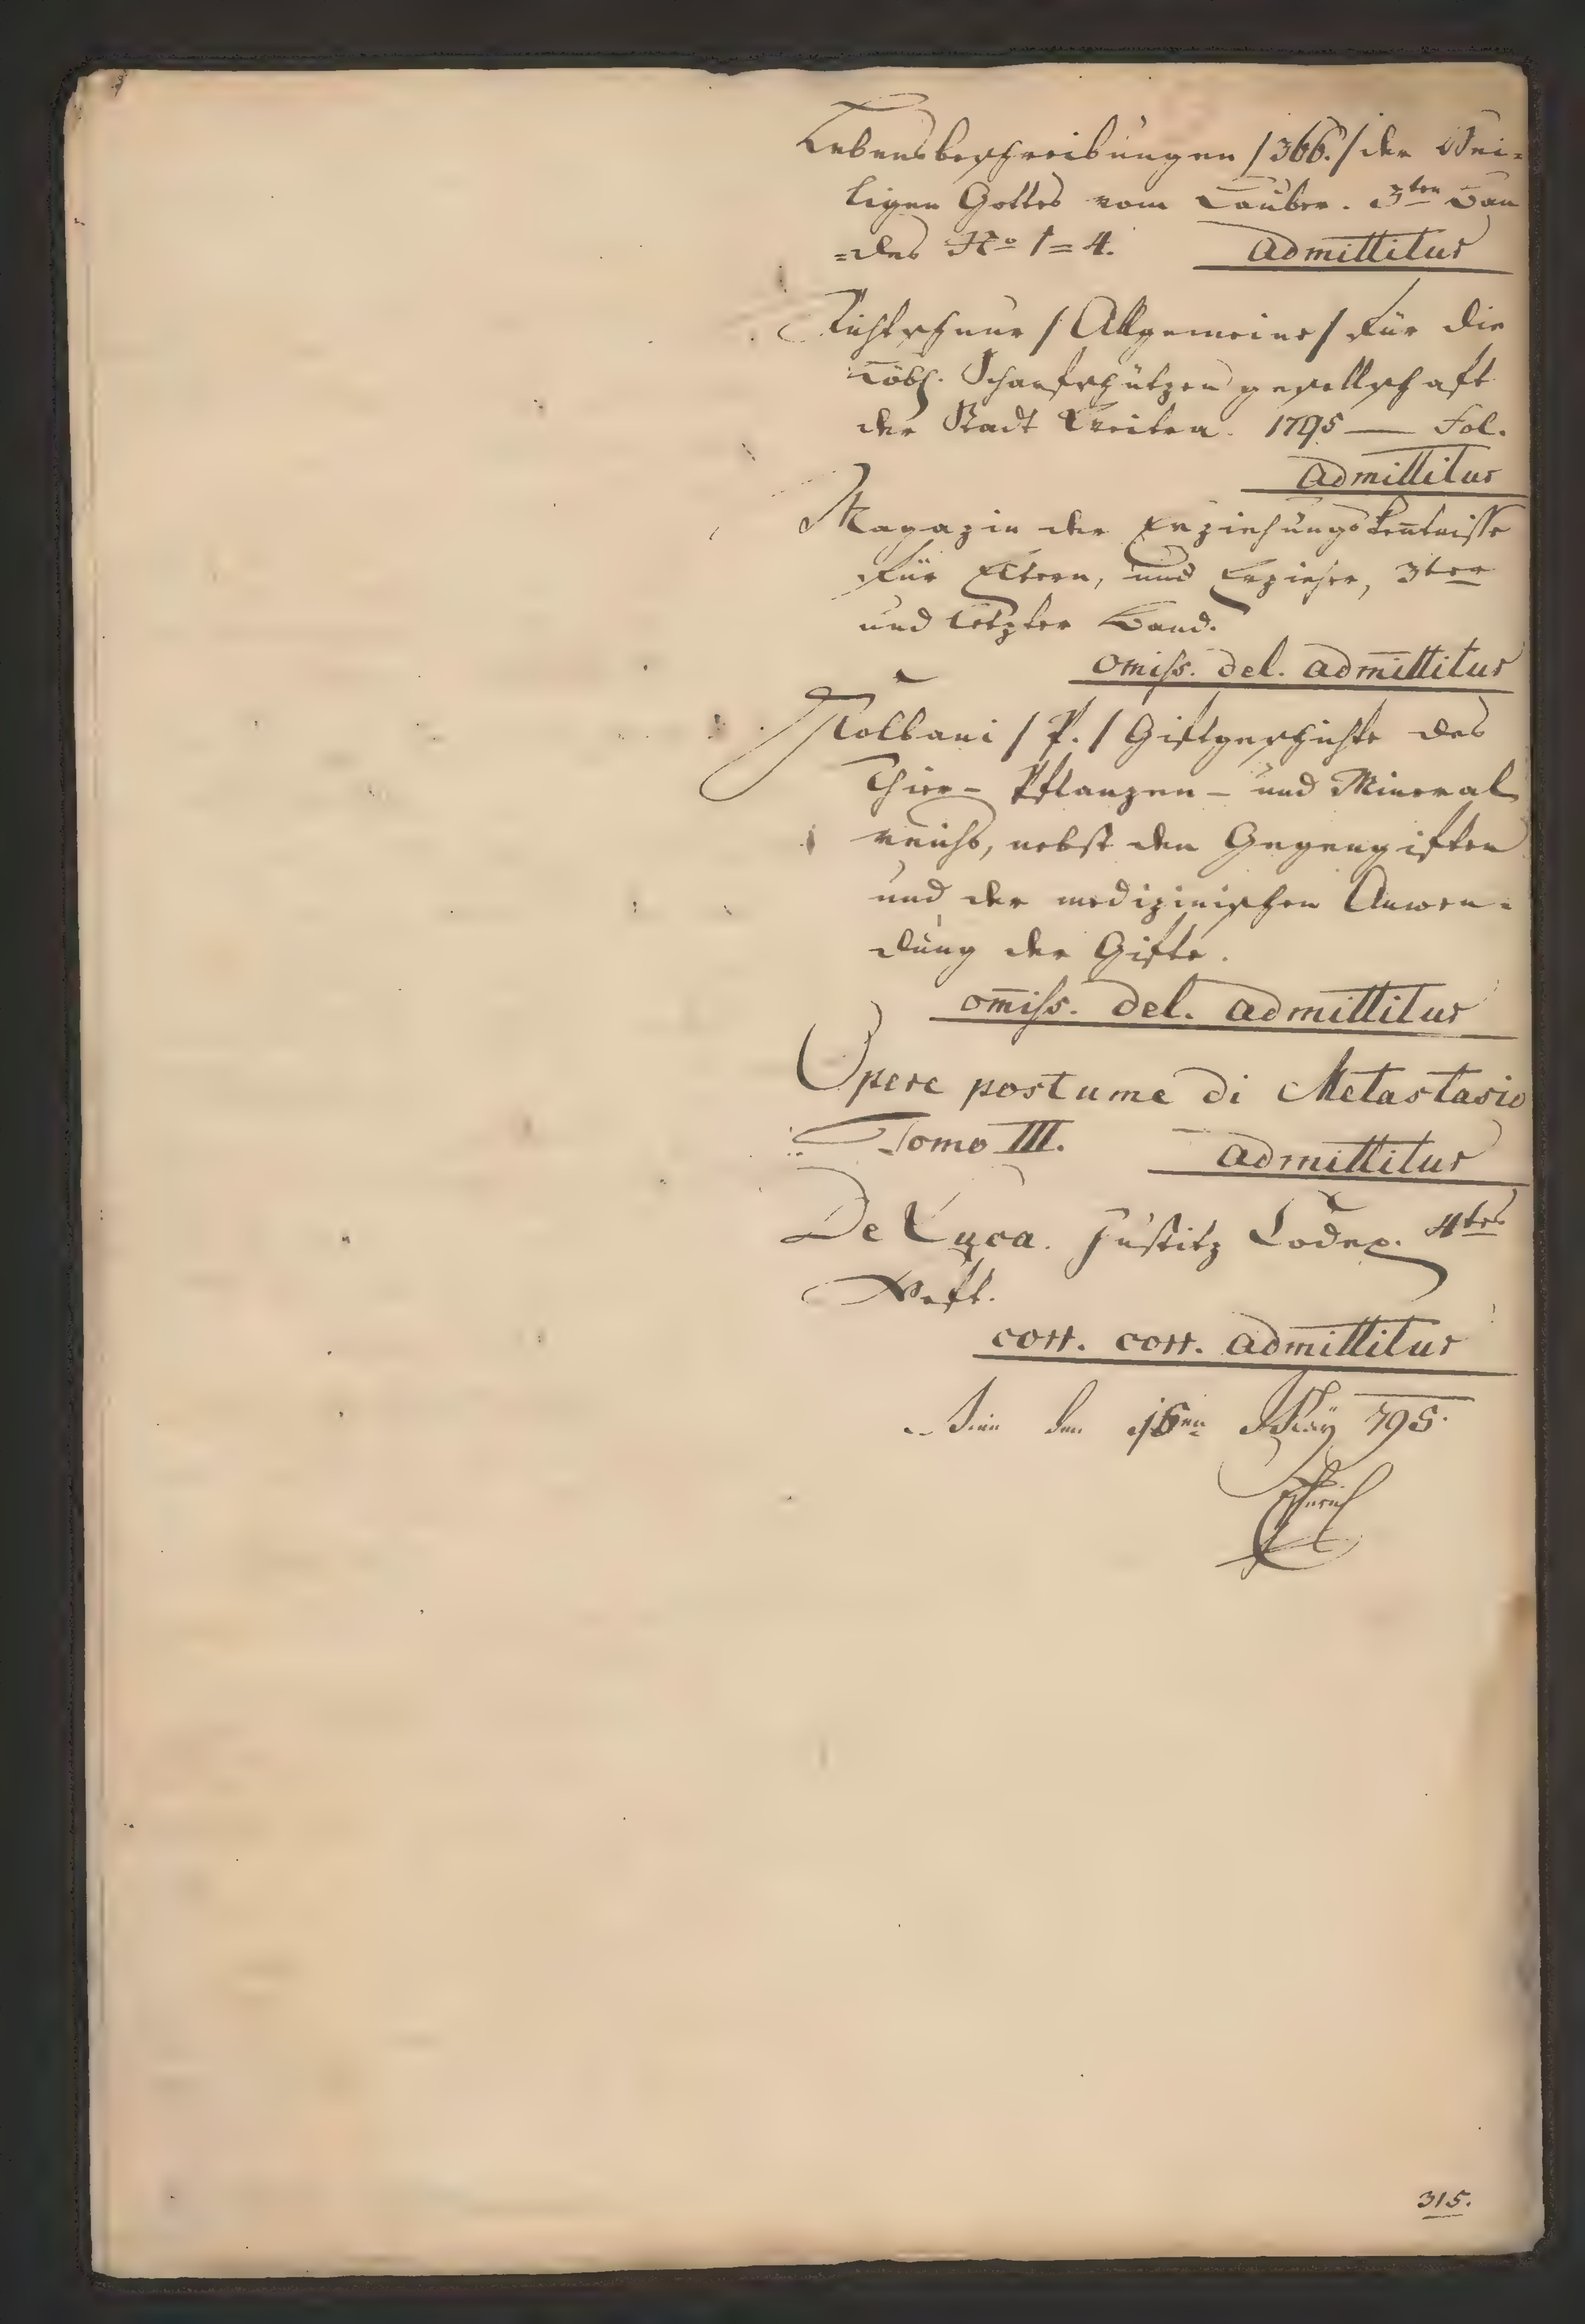 Lebensbeschreibungen /366./ der Hei=
ligen Gottes vom Tauber. 3ten Ban
=des No 1=4. admittitur
Richtschnur /Allgemeine/ für die
Löbl. Scharfschützen gesellschaft
der Stadt 1795 — Fol.
admittitur
Magazin der Erziehungskentnisse
für Eltern, und Erzieher, 3ter
und letzter Band.
omiss. del. admittitur
Kolbani /P./ Giftgeschichte des
Thier- Pflanzen- und Mineral
reichs, nebst den Gegengiften
und der medizinischen Anwen-
dung der Gifte.
omiss. del. admittitur
Opere postume di Metastasio
Tomo III. admittitur
De Luca. Justitz Codex. 4tes
Heft.
corr. corr. admittitur
Wien den 16en May 795.
315.